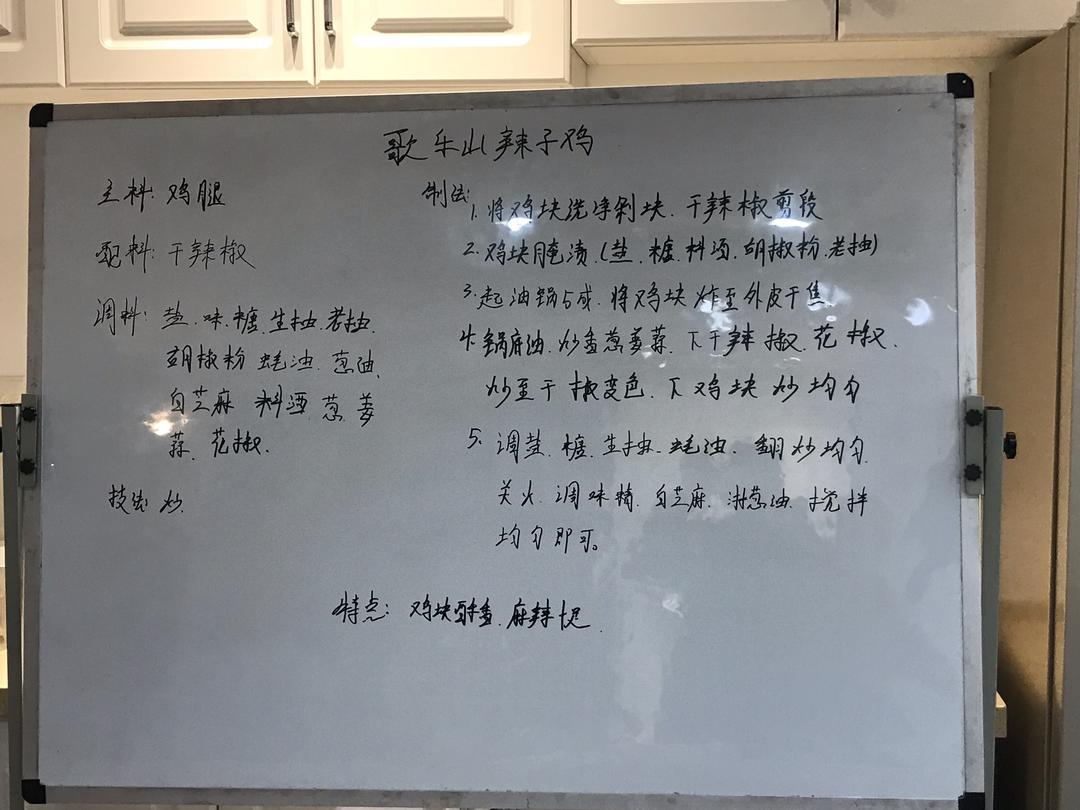 歌乐山辣子鸡
主料: 鸡腿
配料: 干辣椒
调料: 盐.味.糖.生抽.老抽.
胡椒粉 蚝油.葱油.
白芝麻 料酒.葱.姜
蒜.花椒.
技法: 炒.
制法:
1. 将鸡块洗净剁块.干辣椒剪段
2. 鸡块腌渍.(盐.糖.料酒.胡椒粉.老抽)
3. 起油锅5成.将鸡块炸至外皮干焦.
4. 锅麻油.炒香葱姜蒜.下干辣椒.花椒.
炒至干椒变色.下鸡块炒均匀
5. 调盐.糖.生抽.蚝油.翻炒均匀.
关火.调味精.白芝麻.淋葱油.搅拌
均匀即可。
特点: 鸡块酥香.麻辣.